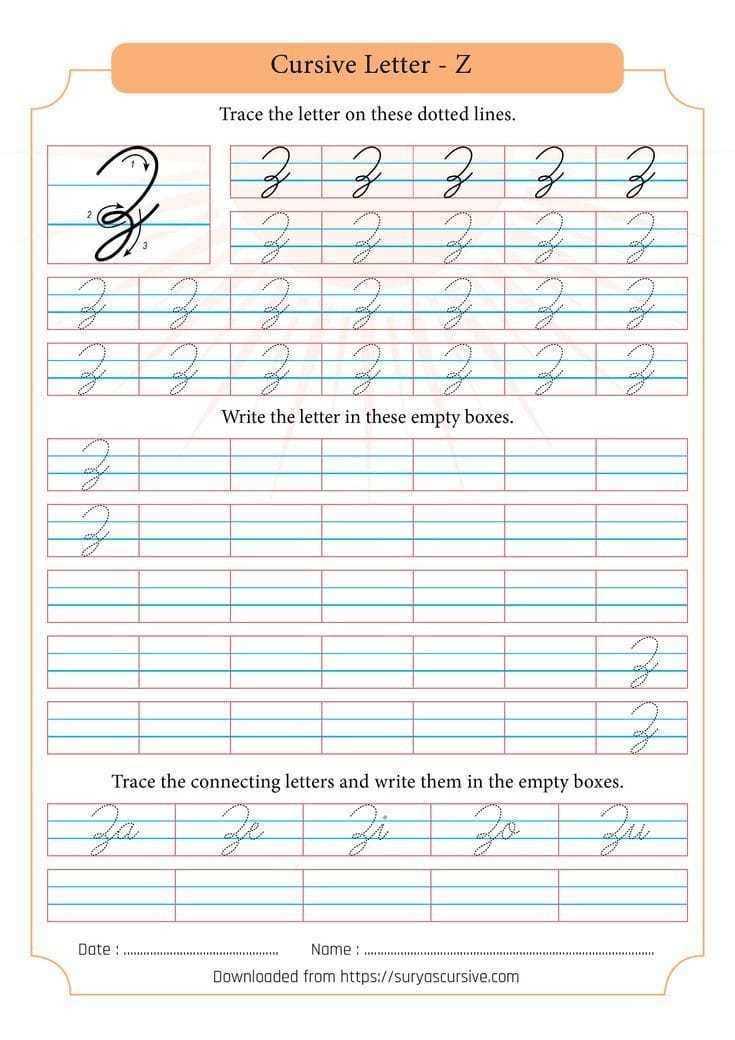 Cursive Letter - Z
Trace the letter on these dotted lines.
1
2
3
Z Z Z Z Z
Z Z Z Z Z
Z Z Z Z Z Z Z
Z Z Z Z Z Z Z
Write the letter in these empty boxes.
Z
Z
Z
Z
Trace the connecting letters and write them in the empty boxes.
Za Ze Zi Zo Zu
Date : ............................................... Name : ...................................................................................
Downloaded from https://suryascursive.com